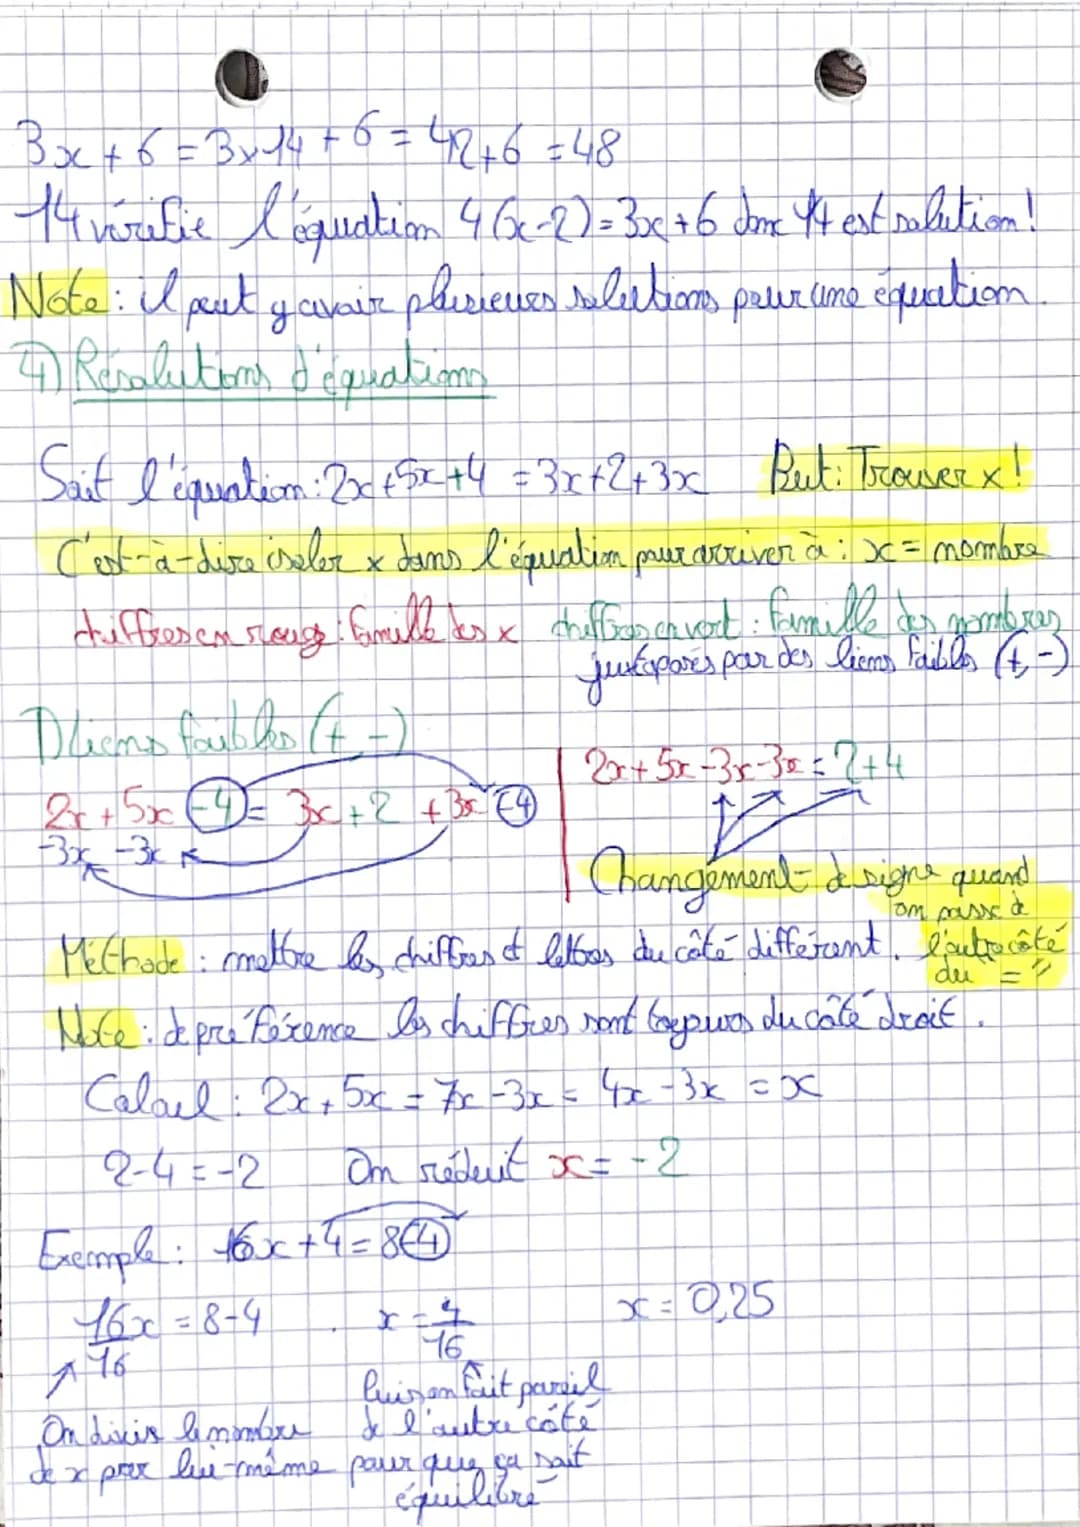 3x + 6 = 3x14 + 6 = 42+6 = 48
14 vérifie l'équation 4(x-2) = 3x+6 donc 14 est solution!
Note : il peut y avoir plusieurs solutions pour une équation.
4) Résolutions d'équations
Soit l'équation : 2x+5x+4 = 3x+2+3x But : Trouver x!
C'est-à-dire isoler x dans l'équation pour arriver à : x = nombre
chiffres en rouge : famille des x chiffres en vert : famille des nombres
juxtaposés par des liens faibles (+, -)
1) Liens faibles (+, -)
2x + 5x -4 = 3x + 2 + 3x -4
-3x -3x
2x + 5x - 3x - 3x = 2+4
Changement de signe quand
on passe de
l'autre côté
du "="
Méthode : mettre les chiffres et lettres du côté différent.
Note : de préférence les chiffres sont toujours du côté droit.
Calcul : 2x + 5x = 7x - 3x = 4x - 3x = x
2-4 = -2 On réduit x = -2
Exemple : 16x + 4 = 8-4
16x/16 = 8-4 x = 4/16 x = 0,25
On divis le nombre
de x par lui-même
Puis on fait pareil
de l'autre côté
pour que ça soit
équilibré